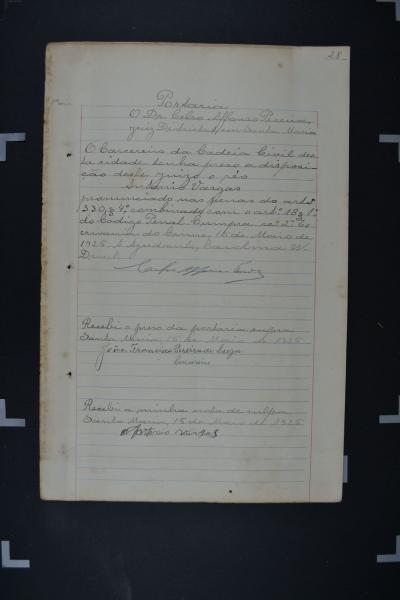 28
Portaria
O Dr. Celso Affonso Pereira,
Juiz Districtal em Santa Maria
O Carcereiro da Cadeia Civil des-
ta cidade tenha preso a disposi-
ção deste juizo o réo
Antonio Vargas
pronunciado nas penas do art.º
330, § 4º combinado com o art. 18 § 1º
do Codigo Penal. Cumpra-se. 2º Es-
crivania do Crime, 15 de Maio de
1928. O Ajudante, Carolina W.
Recebi o preso da portaria supra
Santa Maria, 15 de Maio de 1928
João Francisco Pereira de Souza
Carcereiro
Recebi a minha nota de culpa
Santa Maria, 15 de Maio de 1928
Antonio Vargas